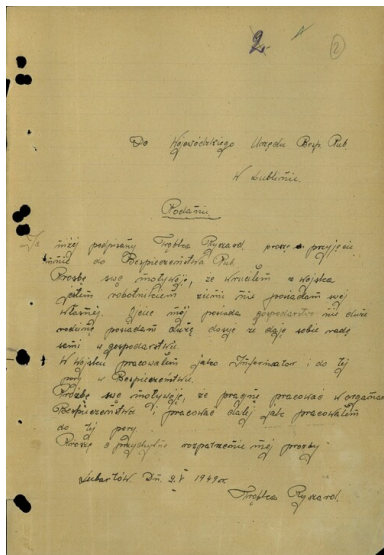 2.
2
Do Wojewódzkiego Urzędu Besp. Pub.
W Lublinie
Podanie
Ja niżej podpisany Trębka Ryszard proszę o przyjęcie
mnie do Bespieczeństwa Pub.
Prozbę swę motywóję, ze wruciłem z wojska
jestem robotnikiem ziemi nie posiadam swej
własnej. Ojciec mój posiada gospodarstwo nie duże
rodzinę posiadam dużą dosyć ze daję sobie radę
sami w gospodarstwie.
W wojsku pracowałem jako Informator i do tej
pory w Bespieczeństwie.
Prozbę swę motywóję, ze pragnę pracować w organach
Bespieczeństwa i pracować dalej jak pracowałem
do tej pory.
Proszę o przychylne rozpatrzenie mej prozby.
Lubartów Dn. 2.V 1949 r.
Trębka Ryszard.